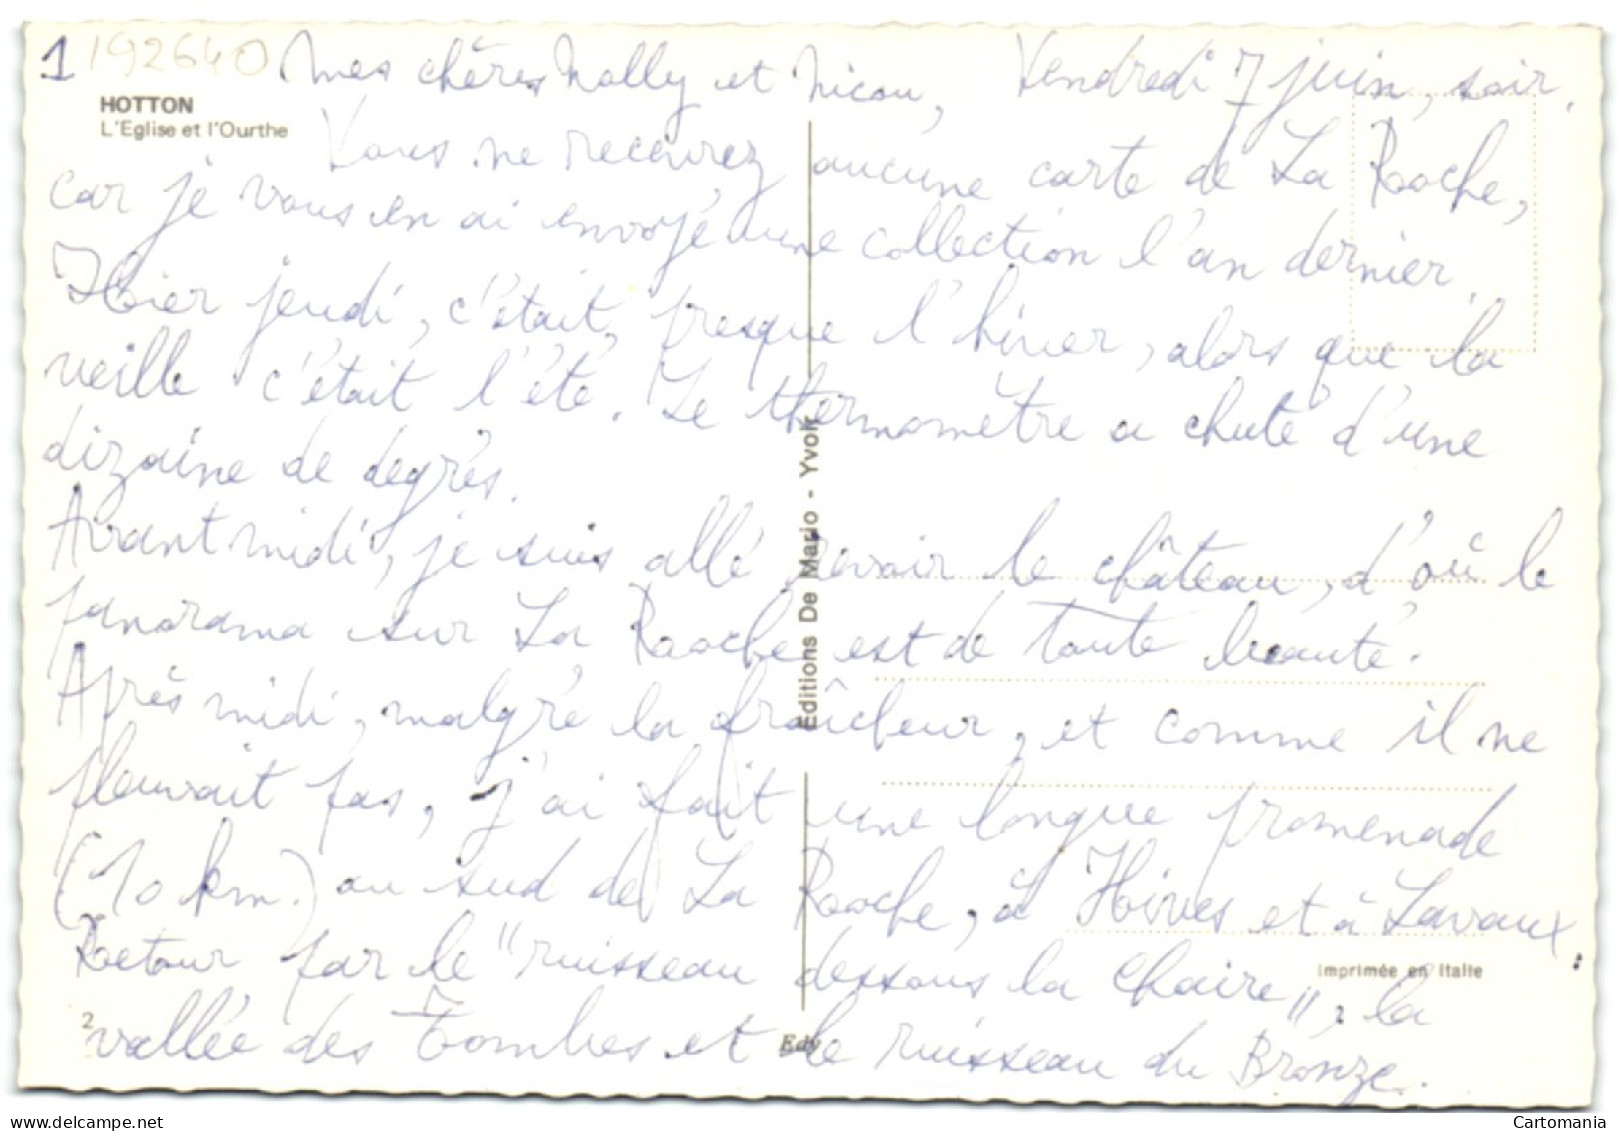 1 192640 Mes chères Nolly et Nicou, Vendredi 7 juin, soir.
HOTTON
L'Eglise et l'Ourthe
Vous ne recevrez aucune carte de La Roche,
car je vous en ai envoyé une collection l'an dernier.
Hier jeudi, c'était presque l'hiver, alors que la
veille c'était l'été. Le thermomètre a chuté d'une
dizaine de degrés.
Avant midi, je suis allé revoir le château, d'où le
panorama sur La Roche est de toute beauté.
Après midi, malgré la fraîcheur, et comme il ne
pleuvait pas, j'ai fait une longue promenade
(10 km.) au sud de La Roche, à Hives et à Lavaux.
Retour par le "ruisseau dessous la Chaire", la
vallée des Tombes et le ruisseau du Bronze.
Editions De Mario - Yvoir
Imprimée en Italie
2
Edy